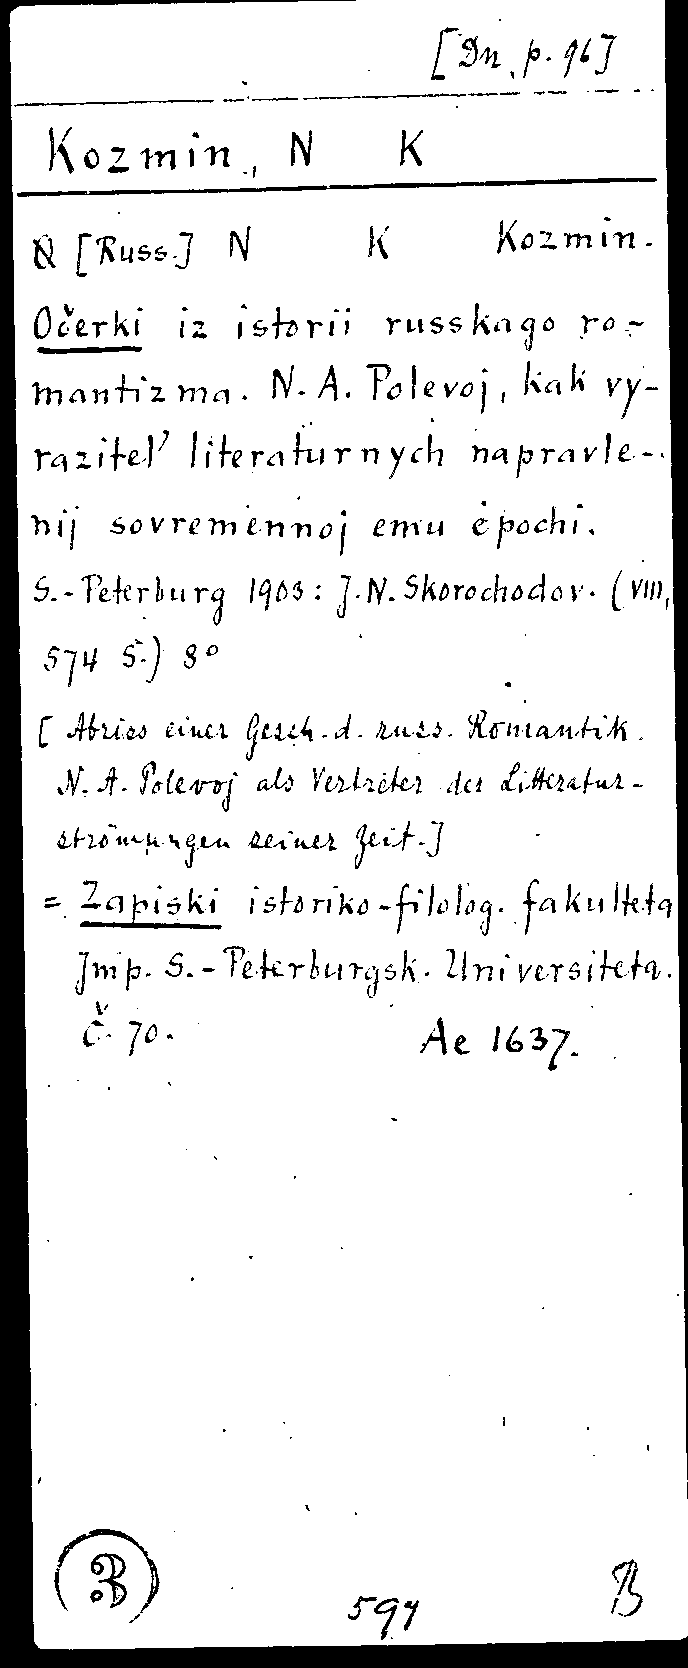 [Dn, p. 96]
Kozmin, N K
[Russ.] N K Kozmin.
Očerki iz istorii russkago ro-
mantizma. N. A. Polevoj, kak vy-
razitel' literaturnych napravle-
nij sovremennoj emu ėpochi.
S.-Peterburg 1903: J. N. Skorochodov. (VIII,
574 S.) 8°
[Abriss einer Gesch. d. russ. Romantik.
N. A. Polevoj als Vertreter der Litteratur-
strömungen seiner Zeit.]
= Zapiski istoriko-filolog. fakulteta
Imp. S.-Peterburgsk. Universiteta.
Č. 70. Ae 1637.
594